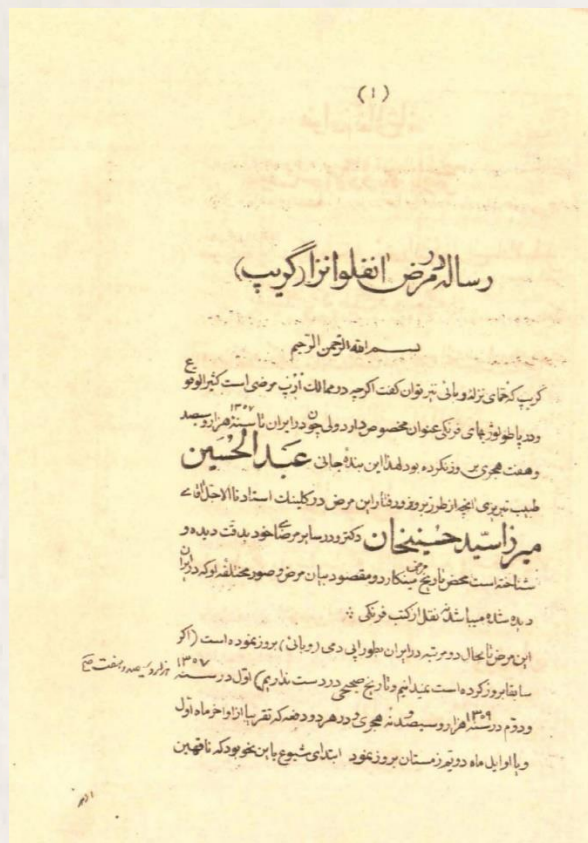 (۱)
رساله در مرض انفلوانزا (گریپ)
بسم الله الرحمن الرحیم
گریپ که حمای نزله وبائی نیز توان گفت اگرچه در ممالک اُرُپ مرضی است کثیر الوقوع
و در پاطولوژیهای فرنگی عنوان مخصوص دارد ولی چون در ایران تا سنهٔ ۱۳۰۷ هزار و سیصد
و هفت هجری بروز نکرده بود لهذا این بندهٔ جانی عبد الحسین
طبیب تبریزی آنچه از طرز بروز و رفتار این مرض در کلینک استادنا الاجل آقای
میرزا سید حسینخان دکتر و در سایر مرضای خود بدقت دیده و
شناخته است محض تاریخ مرض مینگارد و مقصود بیان مرض و صور مختلفه او که در ایران
دیده شده میباشد نقل از کتب فرنگی
این مرض تا بحال دو مرتبه در ایران بطور اپی دمی (وبائی) بروز نموده است (اگر
سابقا بروز کرده است نمیدانیم و تاریخ صحیحی در دست نداریم) اول در سنه ۱۳۰۷ هزار و سیصد و هفت
و دوم در سنه ۱۳۰۹ هزار و سیصد و نه هجری و در هر دو دفعه که تقریبا از اواخر ماه اول
و یا اوایل ماه دویم زمستان بروز نمود ابتدای شیوع باین نحو بود که ناقهین